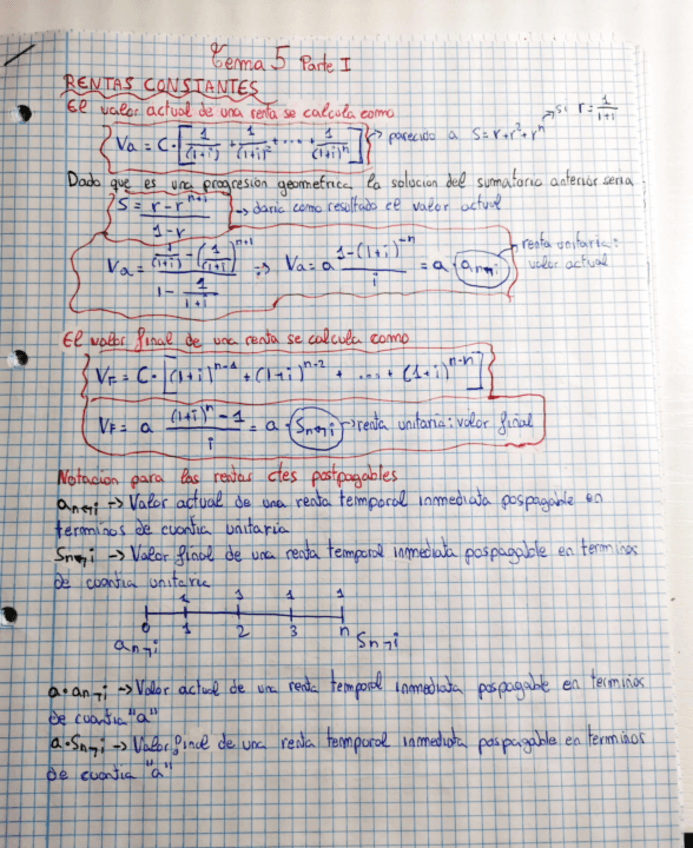 Tema 5 Parte I
RENTAS CONSTANTES
El valor actual de una renta se calcula como
Va = C·[1/(1+i) + 1/(1+i)² + ... + 1/(1+i)ⁿ] → parecido a S = r+r²+rⁿ → si r = 1/(1+i)
Dado que es una progresión geometrica la solucion del sumatorio anterior seria
S = (r - rⁿ⁺¹)/(1-r) → daria como resultado el valor actual
Va = (1/(1+i) - (1/(1+i))ⁿ⁺¹)/(1 - 1/(1+i)) => Va = a (1-(1+i)⁻ⁿ)/i = a · an¬i → renta unitaria: valor actual
El valor final de una renta se calcula como
VF = C·[(1+i)ⁿ⁻¹ + (1+i)ⁿ⁻² + ... + (1+i)ⁿ⁻ⁿ]
VF = a ((1+i)ⁿ - 1)/i = a · Sn¬i → renta unitaria: valor final
Notación para las rentas ctes postpagables
an¬i → Valor actual de una renta temporal inmediata pospagable en
terminos de cuantia unitaria
Sn¬i → Valor final de una renta temporal inmediata pospagable en terminos
de cuantia unitaria
1 1 1 1
0 1 2 3 n
an¬i Sn¬i
a·an¬i → Valor actual de una renta temporal inmediata pospagable en terminos
de cuantia "a"
a·Sn¬i → Valor final de una renta temporal inmediata pospagable en terminos
de cuantia "a"